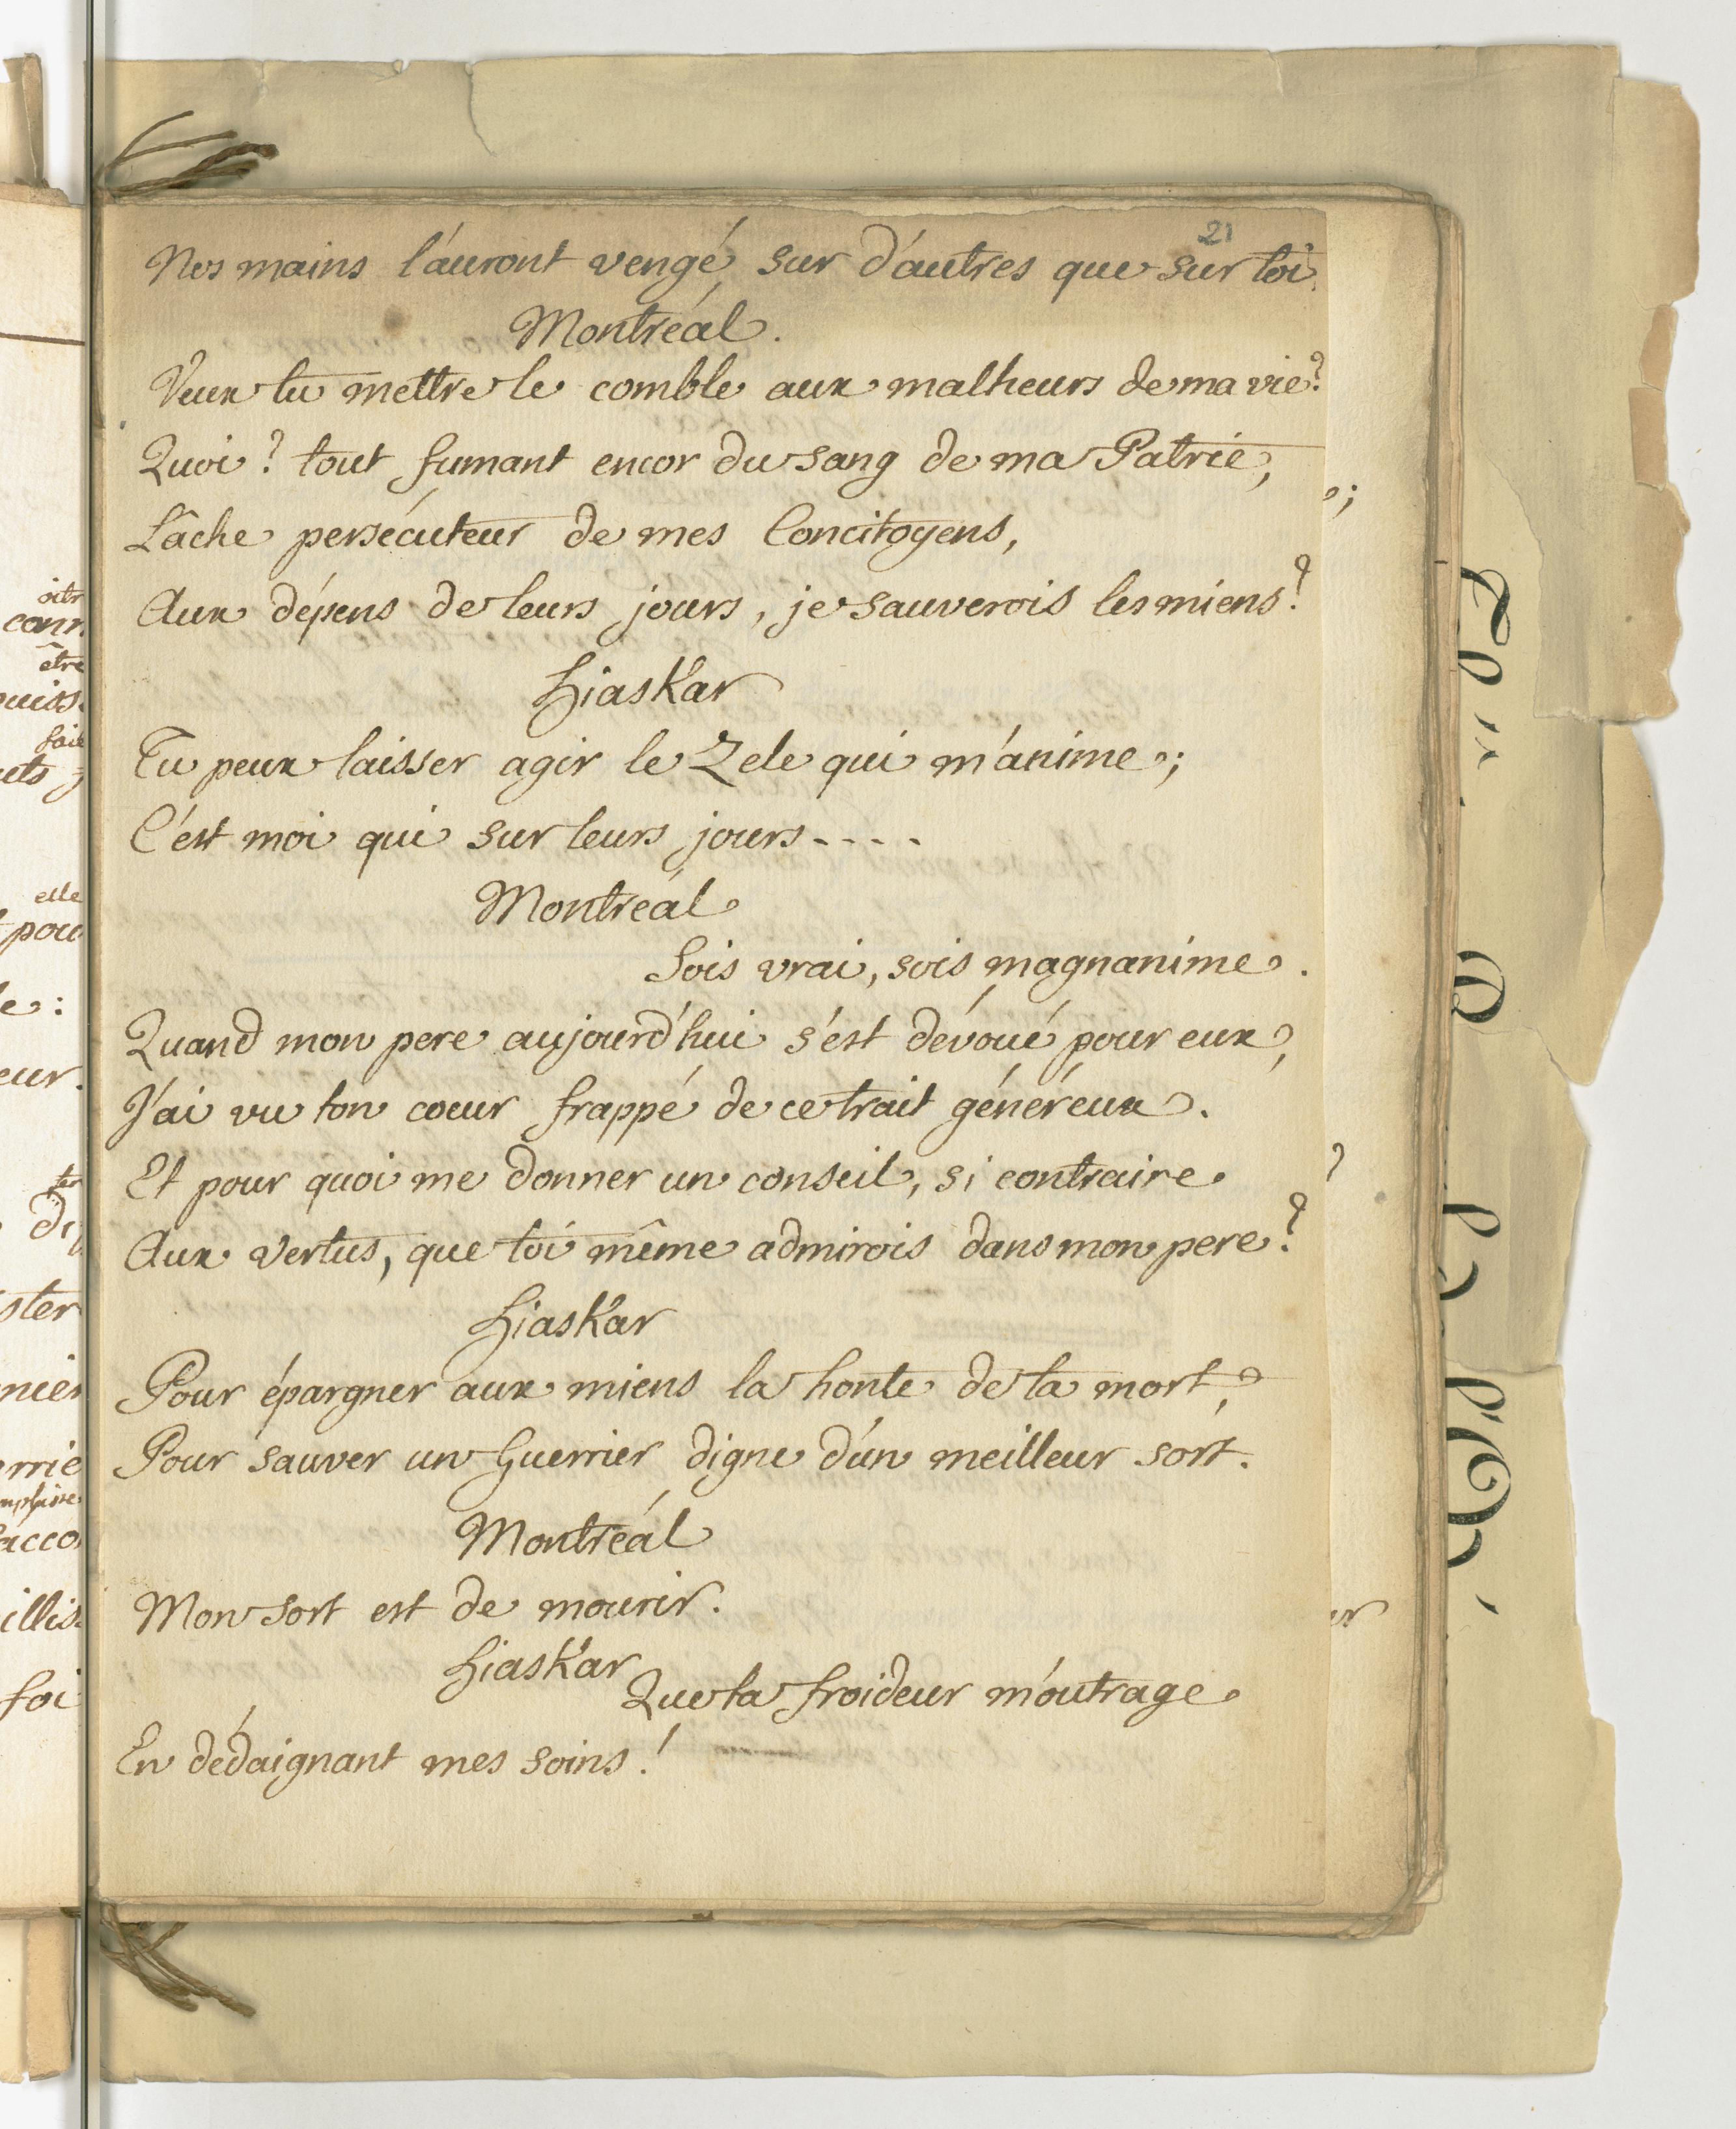 21
Nos mains l'auront vengé, sur d'autres que sur toi.
Montréal.
Veux tu mettre le comble aux malheurs de ma vie?
Quoi? tout fumant encor du sang de ma Patrie,
Lâche persécuteur de mes Concitoyens,
Aux dépens de leurs jours, je sauverois les miens?
Hiaskar
Tu peux laisser agir le Zele qui m'anime;
C'est moi qui sur leurs jours----
Montréal
Sois vrai, sois magnanime.
Quand mon pere aujourd'hui s'est dévoué pour eux,
J'ai vu ton coeur frappé de ce trait généreux.
Et pour quoi me donner un conseil, si contraire
Aux vertus, que toi même admirois dans mon pere?
Hiaskar
Pour épargner aux miens la honte de ta mort,
Pour sauver un Guerrier digne d'un meilleur sort.
Montréal
Mon sort est de mourir.
Hiaskar
Que ta froideur m'outrage
En dédaignant mes soins!